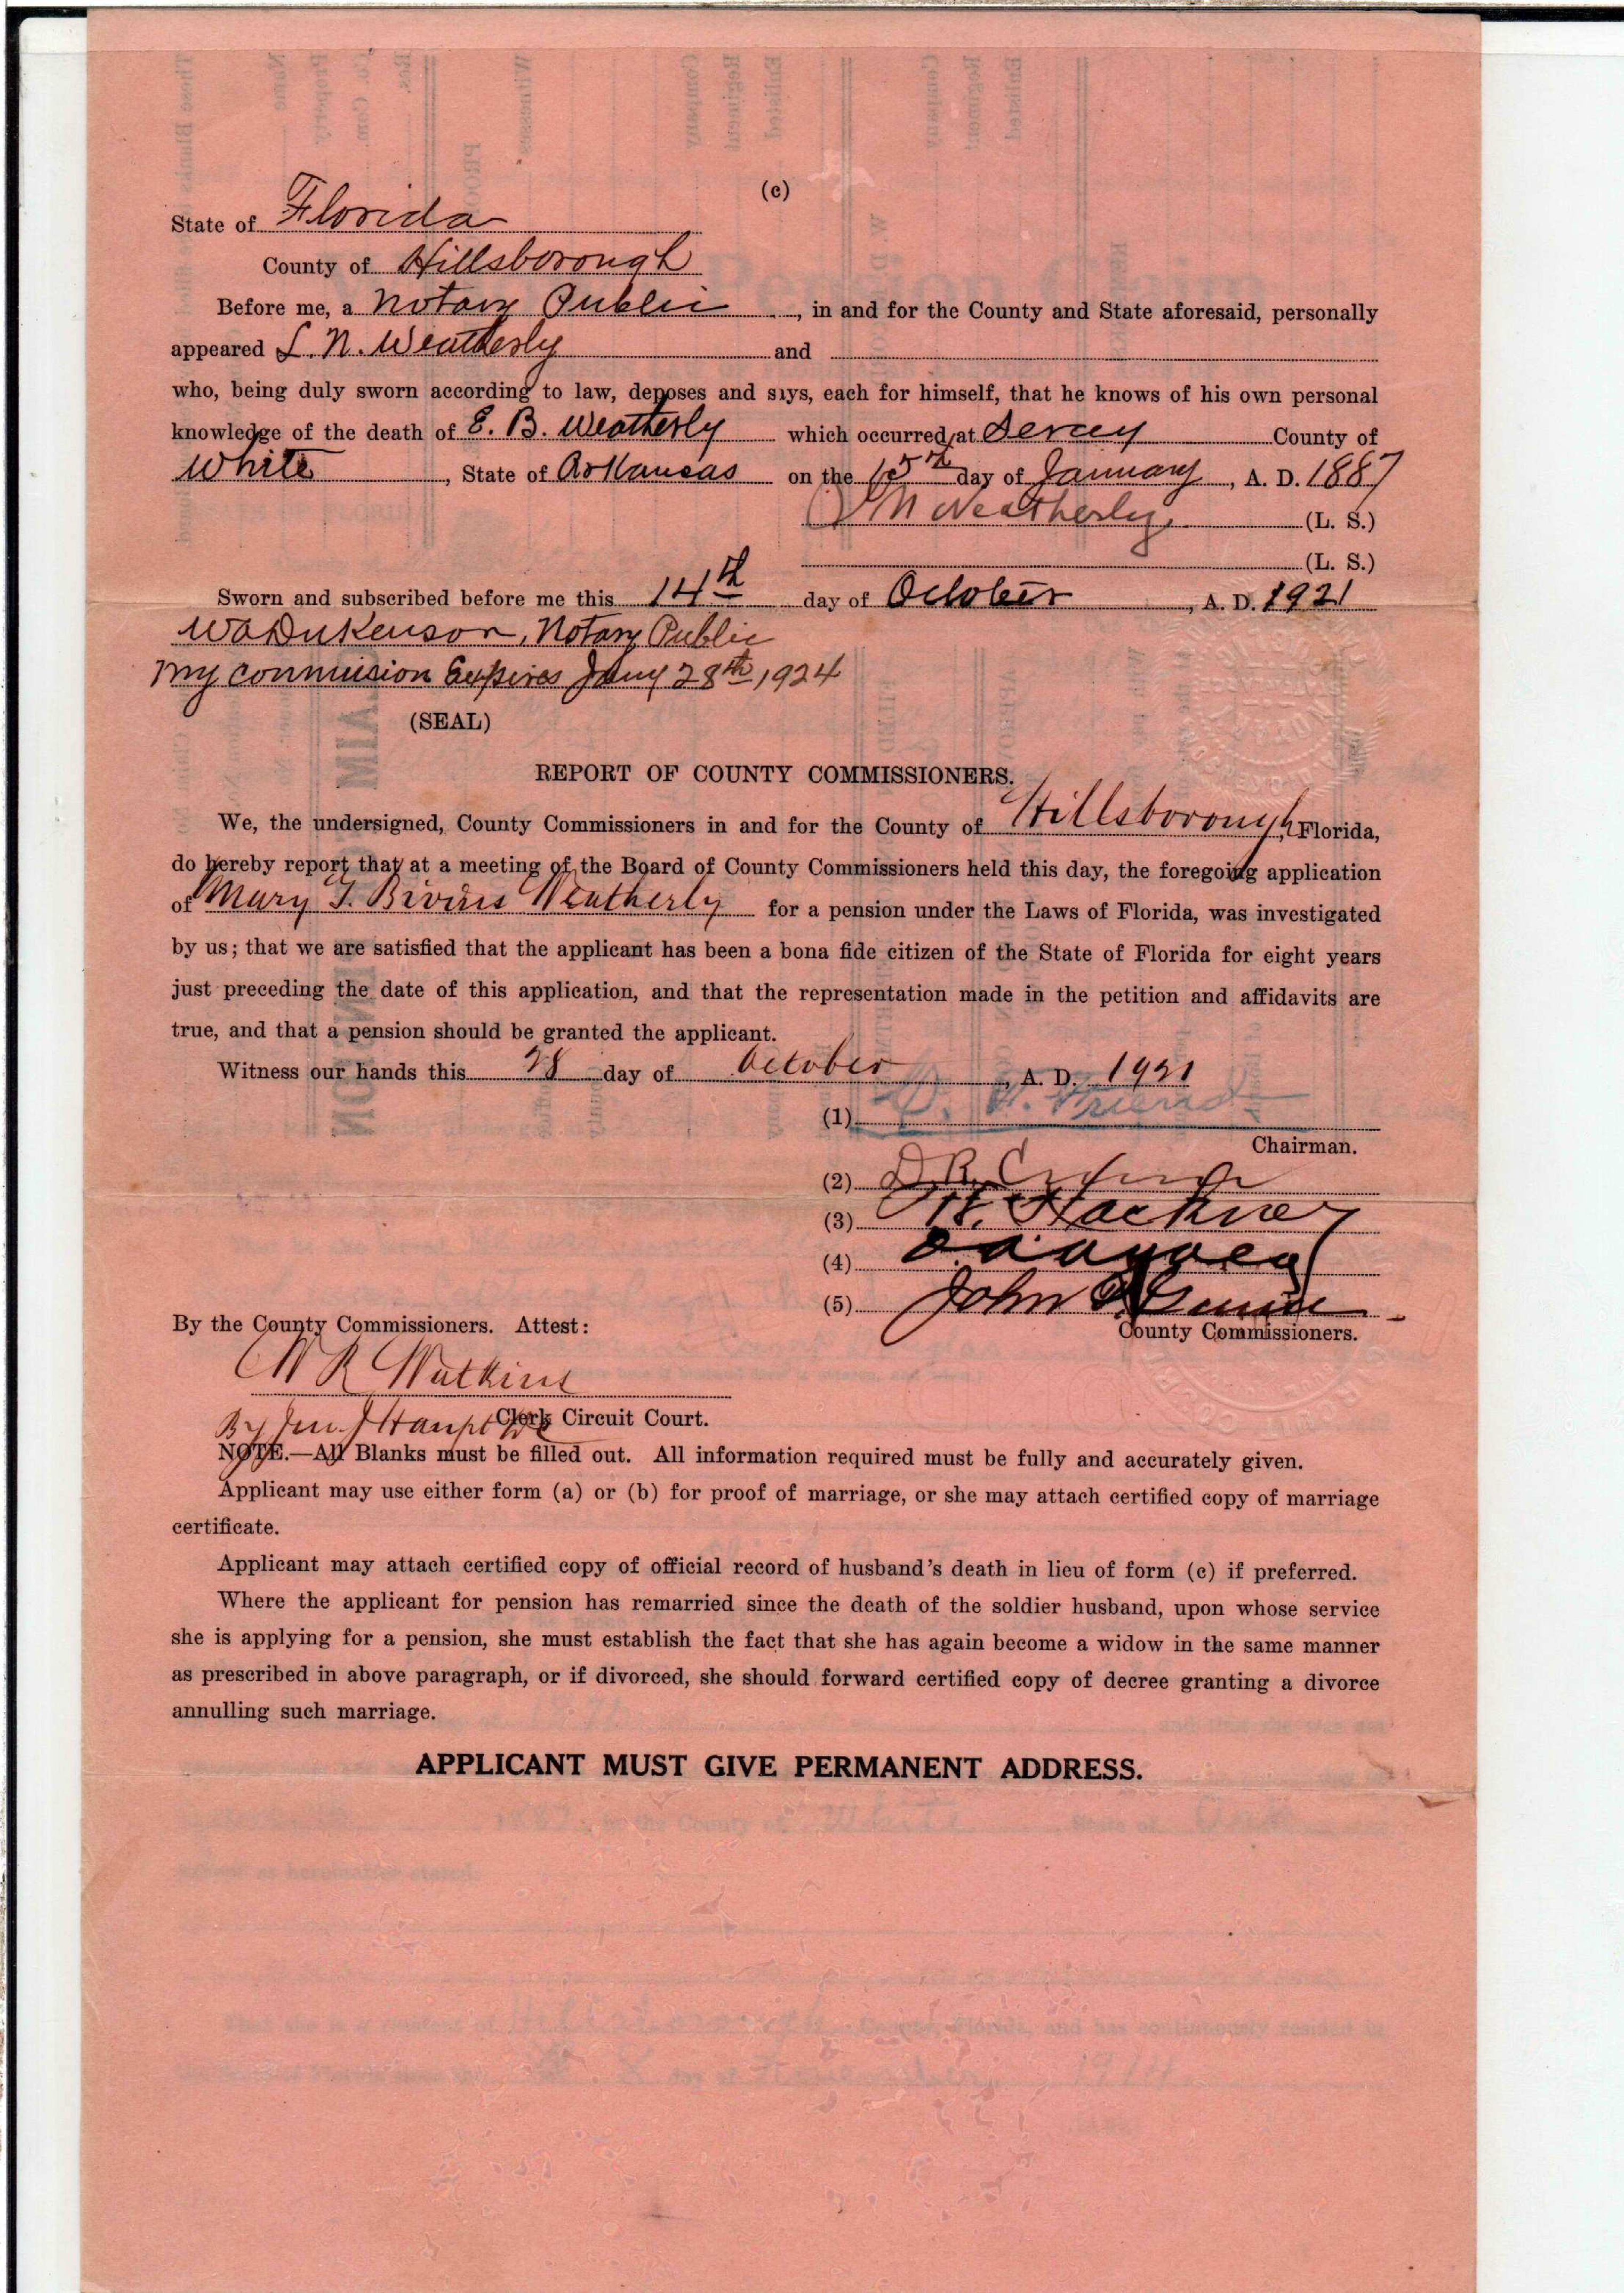 (c)
State of Florida
County of Hillsborough
Before me, a Notary Public, in and for the County and State aforesaid, personally
appeared L. N. Weatherly and
who, being duly sworn according to law, deposes and says, each for himself, that he knows of his own personal
knowledge of the death of E. B. Weatherly which occurred at Sercey County of
White, State of Arkansas on the 15th day of January, A. D. 1887
L N Weatherly (L. S.)
(L. S.)
Sworn and subscribed before me this 14th day of October, A. D. 1921
W A Dickenson, Notary Public
My commission Expires Jany 28th, 1924
(SEAL)
REPORT OF COUNTY COMMISSIONERS.
We, the undersigned, County Commissioners in and for the County of Hillsborough, Florida,
do hereby report that at a meeting of the Board of County Commissioners held this day, the foregoing application
of Mary F. Bivins Weatherly for a pension under the Laws of Florida, was investigated
by us; that we are satisfied that the applicant has been a bona fide citizen of the State of Florida for eight years
just preceding the date of this application, and that the representation made in the petition and affidavits are
true, and that a pension should be granted the applicant.
Witness our hands this 28 day of October, A. D. 1921
(1) Friend
Chairman.
(2) D. R.
(3) H. Hackney
(4)
(5) John
County Commissioners.
By the County Commissioners. Attest:
W R Watkins
By Jno. J Haupt DC Clerk Circuit Court.
NOTE.—All Blanks must be filled out. All information required must be fully and accurately given.
Applicant may use either form (a) or (b) for proof of marriage, or she may attach certified copy of marriage
certificate.
Applicant may attach certified copy of official record of husband's death in lieu of form (c) if preferred.
Where the applicant for pension has remarried since the death of the soldier husband, upon whose service
she is applying for a pension, she must establish the fact that she has again become a widow in the same manner
as prescribed in above paragraph, or if divorced, she should forward certified copy of decree granting a divorce
annulling such marriage.
APPLICANT MUST GIVE PERMANENT ADDRESS.